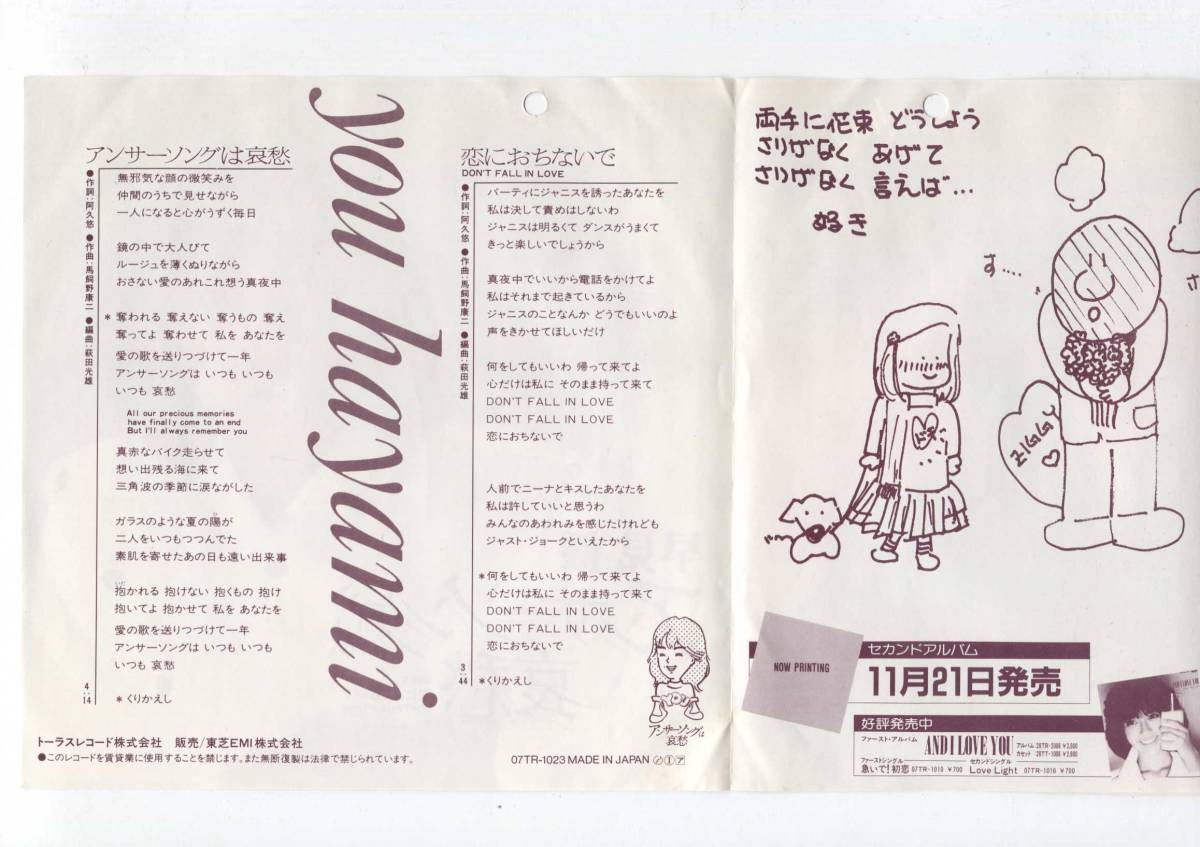 アンサーソングは哀愁
●作詞:阿久悠 ●作曲:馬飼野康二 ●編曲:萩田光雄
無邪気な顔の微笑みを
仲間のうちで見せながら
一人になると心がうずく毎日
鏡の中で大人びて
ルージュを薄くぬりながら
おさない愛のあれこれ想う真夜中
* 奪われる 奪えない 奪うもの 奪え
奪ってよ 奪わせて 私を あなたを
愛の歌を送りつづけて一年
アンサーソングは いつも いつも
いつも 哀愁
All our precious memories
have finally come to an end
But I'll always remember you
真赤なバイク走らせて
想い出残る海に来て
三角波の季節に涙ながした
ガラスのような夏の陽が
二人をいつもつつんでた
素肌を寄せたあの日も遠い出来事
抱かれる 抱けない 抱くもの 抱け
抱いてよ 抱かせて 私を あなたを
愛の歌を送りつづけて一年
アンサーソングは いつも いつも
いつも 哀愁
* くりかえし
4:14
you hayami
恋におちないで
DON'T FALL IN LOVE
●作詞:阿久悠 ●作曲:馬飼野康二 ●編曲:萩田光雄
パーティにジャニスを誘ったあなたを
私は決して責めはしないわ
ジャニスは明るくて ダンスがうまくて
きっと楽しいでしょうから
真夜中でいいから電話をかけてよ
私はそれまで起きているから
ジャニスのことなんか どうでもいいのよ
声をきかせてほしいだけ
何をしてもいいわ 帰って来てよ
心だけは私に そのまま持って来て
DON'T FALL IN LOVE
DON'T FALL IN LOVE
恋におちないで
人前でニーナとキスしたあなたを
私は許していいと思うわ
みんなのあわれみを感じたけれども
ジャスト・ジョークといえたから
*何をしてもいいわ 帰って来てよ
心だけは私に そのまま持って来て
DON'T FALL IN LOVE
DON'T FALL IN LOVE
恋におちないで
*くりかえし
3:44
アンサーソングは
哀愁
トーラスレコード株式会社 販売/東芝EMI株式会社
●このレコードを賃貸業に使用することを禁じます。また無断複製は法律で禁じられています。
07TR-1023 MADE IN JAPAN
両手に花束 どうしよう
さりげなく あげて
さりげなく 言えば…
好き
す‥‥
ドキ
NOW PRINTING
セカンドアルバム
11月21日発売
好評発売中
ファースト・アルバム
AND I LOVE YOU
アルバム:28TR-2008 ¥2,800
カセット:28TT-1008 ¥2,800
ファーストシングル
急いで!初恋 07TR-1010 ¥700
セカンドシングル
Love Light 07TR-1016 ¥700